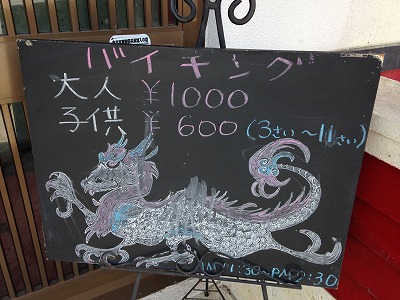 バイキング
大人 ¥1000
子供 ¥600 (3さい〜11さい)